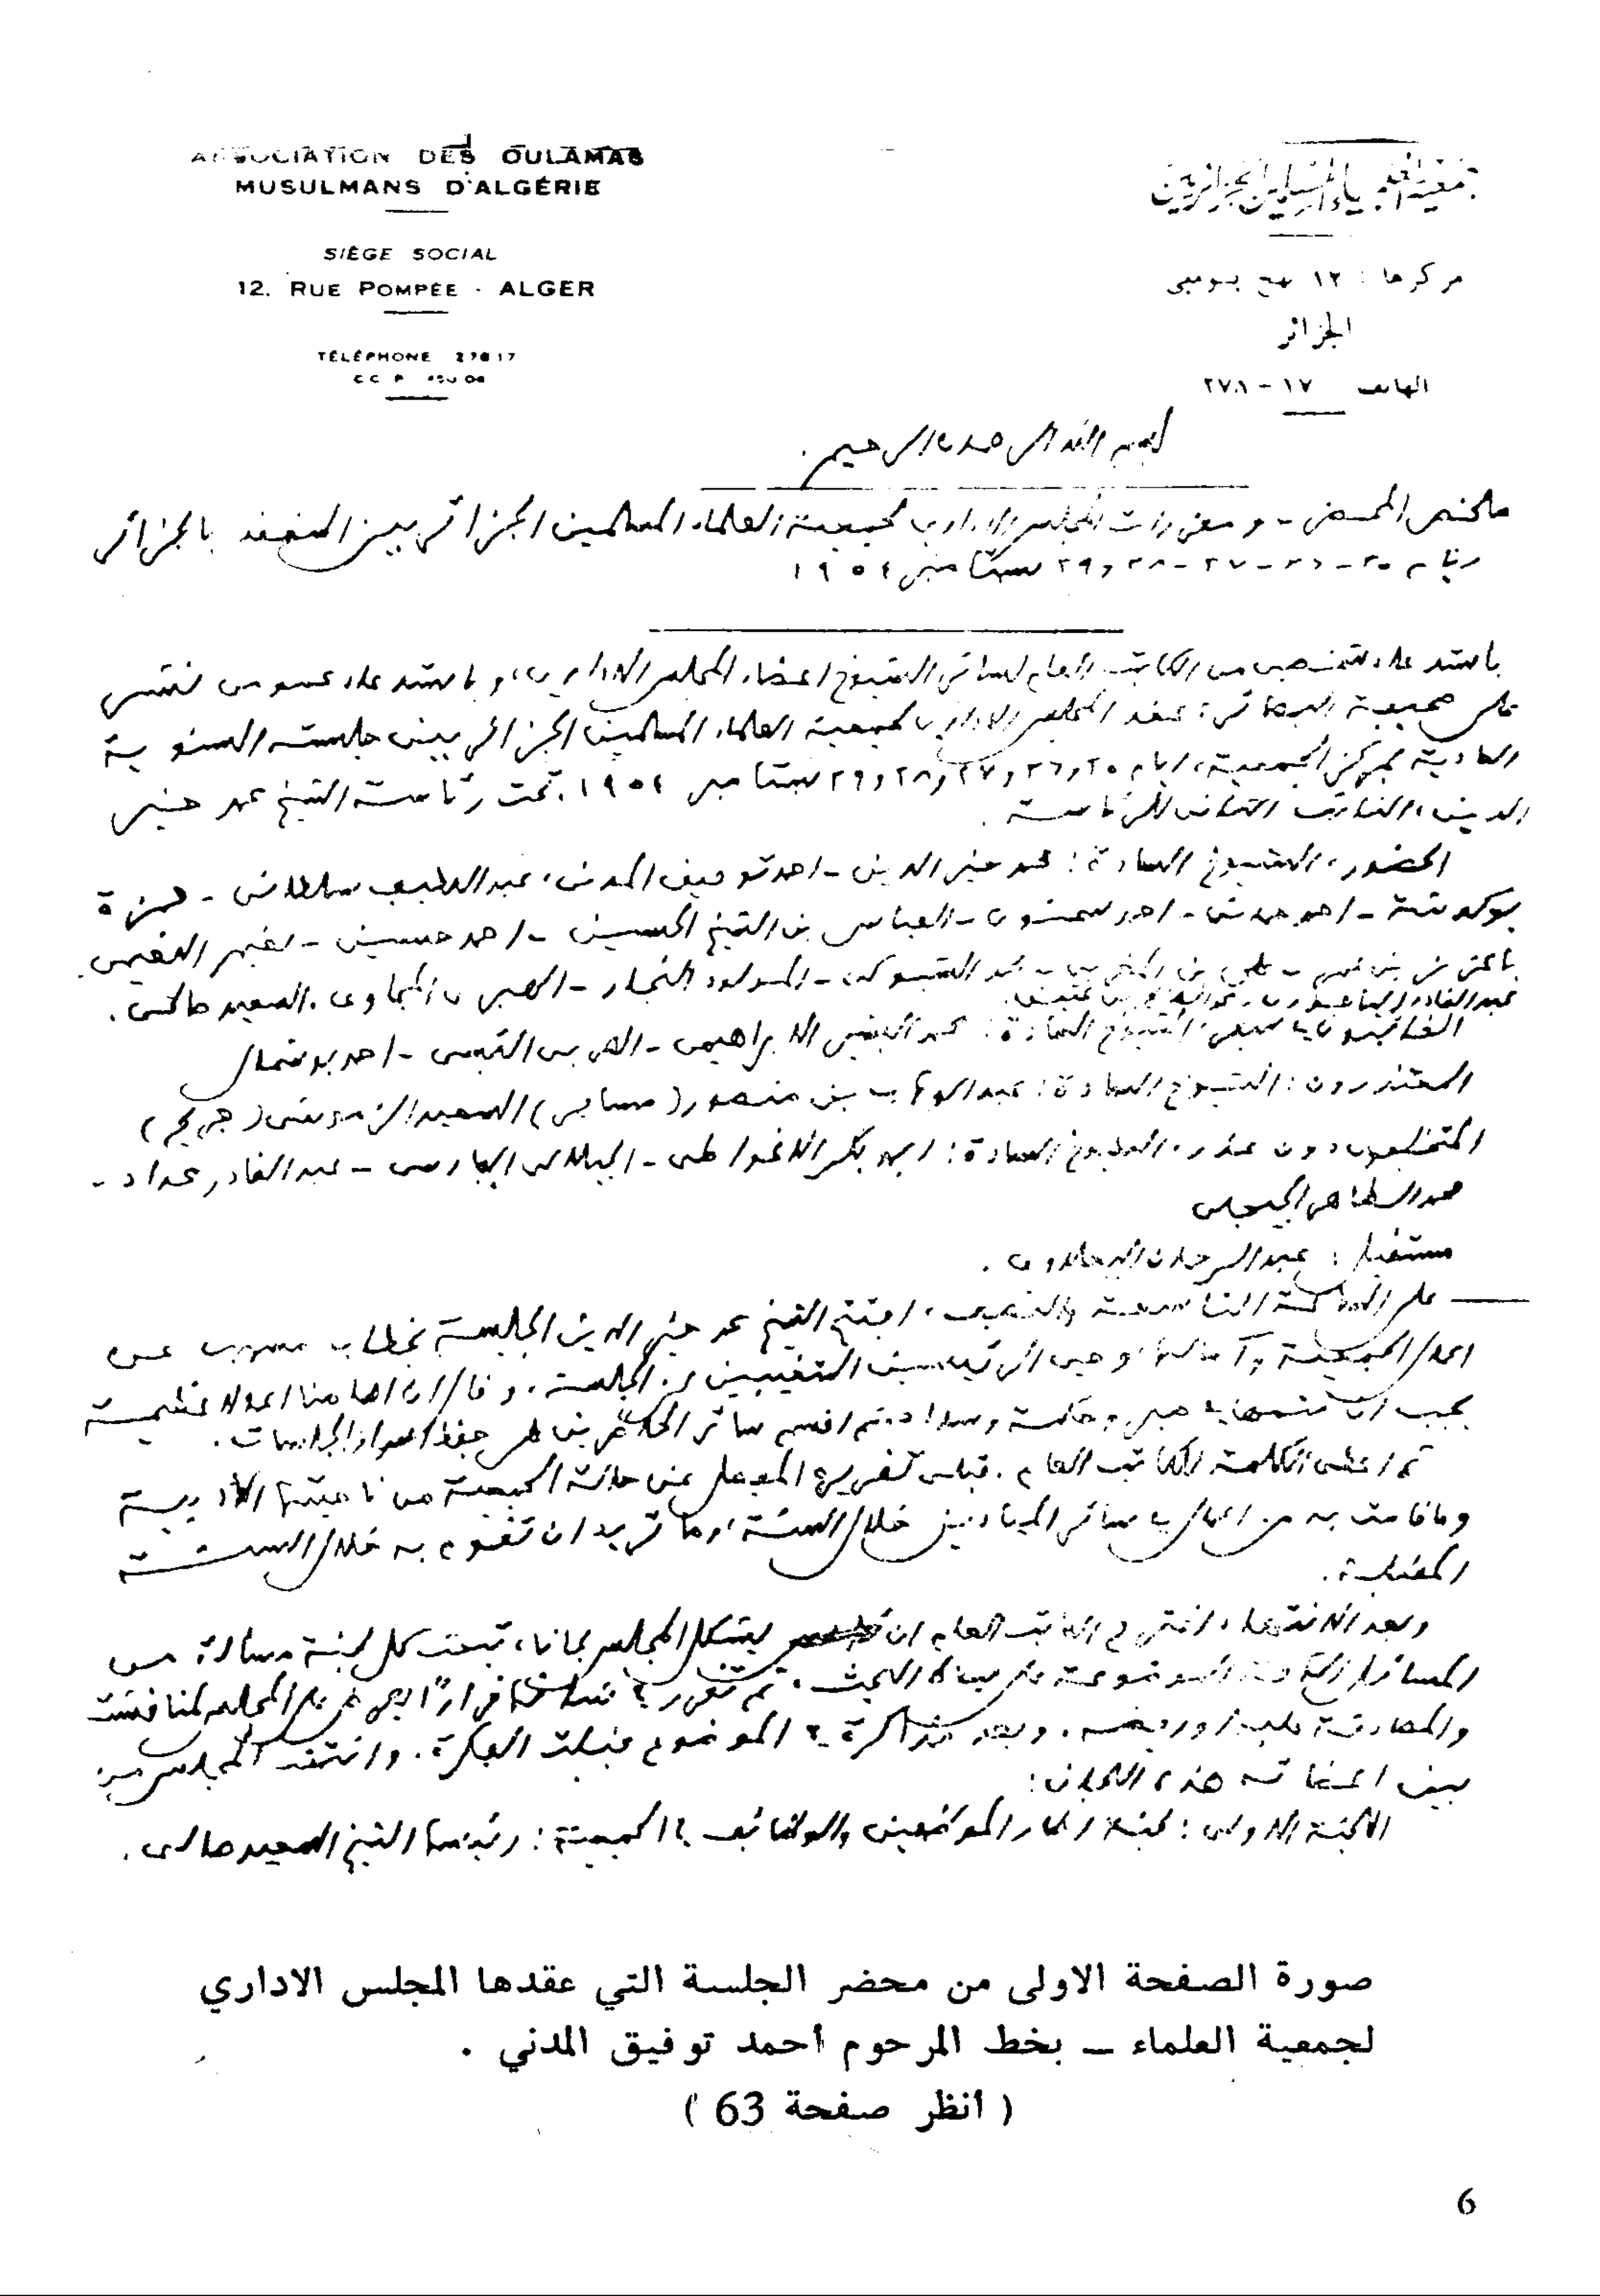 ASSOCIATION DES OULAMAS
MUSULMANS D'ALGÉRIE
SIÈGE SOCIAL
12. RUE POMPÉE - ALGER
TÉLÉPHONE 278 17
C C P
جمعية العلماء المسلمين الجزائريين
مركزها : ١٢ نهج بومبي
الجزائر
الهاتف ١٧ - ٢٧٨
بسم الله الرحمن الرحيم.
ملخص المحضر - ومقررات المجلس الاداري لجمعية العلماء المسلمين الجزائريين المنعقد بالجزائر
ايام ٢٥ - ٢٦ - ٢٧ - ٢٨ و ٢٩ سبتامبر ١٩٥٤
باستدعاء شخصي من الكاتب العام لسائر الشيوخ اعضاء المجلس الاداري، و باستدعاء عمومي نشر
على صحيفة البصائر، عقد المجلس الاداري لجمعية العلماء المسلمين الجزائريين جلسته السنوية
العادية بمركز الجمعية، ايام ٢٥ و ٢٦ و ٢٧ و ٢٨ و ٢٩ سبتامبر ١٩٥٤. تحت رئاسة الشيخ محمد خير
الدين، النائب الثاني للرئاسة.
الحضور، الشيوخ السادة: محمد خير الدين - احمد توفيق المدني، عبد اللطيف سلطاني - حمزة
بوكوشة - احمد سحنون - العباس بن الشيخ الحسين - احمد حسين - نعيم النعيمي
باعزيز بن عمر - المولود النجار - المجاوي. السعيد صالحي.
الغائبون السادة: محمد البشير الابراهيمي - العربي التبسي - احمد بوشمال
المعتذرون: الشيوخ السادة: عبد الوهاب بن منصور (مسافر) السعيد الزموشي (جريح)
المتخلفون دون عذر، الشيوخ السادة: ابو بكر الاغواطي - الجيلالي الفارسي - عبد القادر حداد -
محمد الطاهر الجيجلي
مستقيل: عبد الرحمن
على الساعة التاسعة والنصف، افتتح الشيخ محمد خير الدين الجلسة بخطاب عن
اعمال الجمعية و آمالها وحيى الرئيسين المتغيبين. وقال ان امامنا اعمالا عظيمة
يجب ان وحكمة وسداد، ثم اقسم سائر الحاضرين على حفظ اسرار الجلسات.
ثم اعطى الكلمة للكاتب العام. فتلى تقريره المفصل عن حالة الجمعية من ناحيتها الادبية
وما قامت به من اعمال في سائر الميادين خلال السنة، وما تريد ان تقوم به خلال السنة
المقبلة.
وبعد الانتهاء، اقترح الكاتب العام ان يشكل المجلس لجانا، تبحث كل لجنة مسألة من
المسائل الموضوعة على بساط البحث. ثم تقرر في شأنها قرارا يعرض على المجلس لمناقشته
والمصادقة عليه او رفضه. وبعد مذاكرة في الموضوع قبلت الفكرة. وانتخب المجلس من
بين اعضائه هذه اللجان:
اللجنة الاولى: لجنة اطار الموظفين والوظائف في الجمعية: رئيسها الشيخ السعيد صالحي.
صورة الصفحة الاولى من محضر الجلسة التي عقدها المجلس الاداري
لجمعية العلماء – بخط المرحوم أحمد توفيق المدني .
( أنظر صفحة 63 )
6